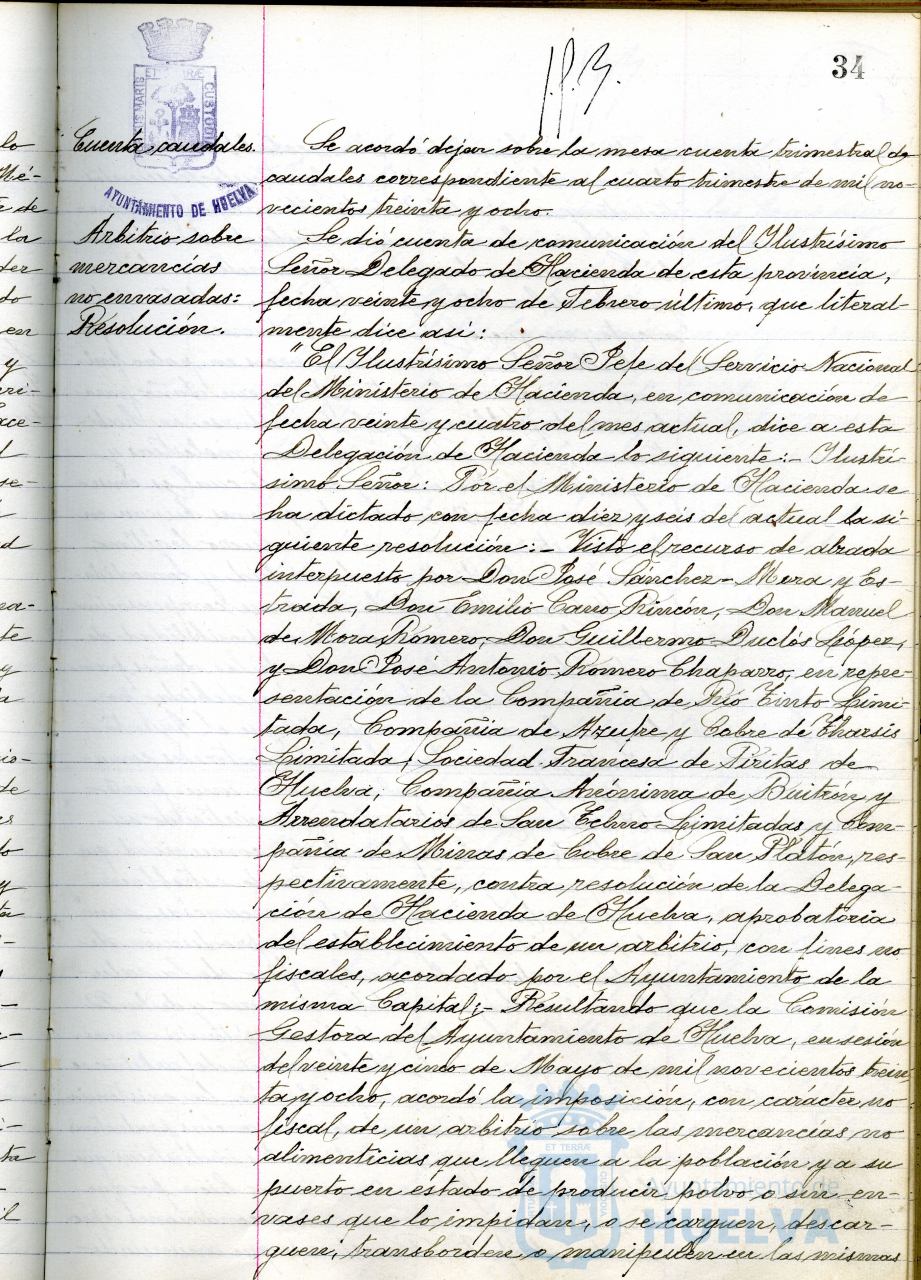 34
PORTUS MARIS ET TERRÆ CUSTODIA
AYUNTAMIENTO DE HUELVA
Cuenta caudales.
Se acordó dejar sobre la mesa cuenta trimestral de
caudales correspondiente al cuarto trimestre de mil no-
vecientos treinta y ocho.
Arbitrio sobre
mercancías
no envasadas:
Resolución.
Se dió cuenta de comunicación del Ilustrísimo
Señor Delegado de Hacienda de esta provincia,
fecha veinte y ocho de Febrero último, que literal-
mente dice así:
"El Ilustrísimo Señor Jefe del Servicio Nacional
del Ministerio de Hacienda, en comunicación de
fecha veinte y cuatro del mes actual, dice a esta
Delegación de Hacienda lo siguiente:- Ilustrí-
simo Señor: Por el Ministerio de Hacienda se
ha dictado con fecha diez y seis del actual la si-
guiente resolución:- Visto el recurso de alzada
interpuesto por Don José Sánchez-Mora y Es-
trada, Don Emilio Cano Rincón, Don Manuel
de Mora Romero, Don Guillermo Duclós López,
y Don José Antonio Romero Chaparro, en repre-
sentación de la Compañía de Río Tinto Limi-
tada, Compañía de Azufre y Cobre de Tharsis
Limitada, Sociedad Francesa de Piritas de
Huelva, Compañía Anónima de Buitrón y
Arrendatarios de San Telmo Limitadas y Com-
pañía de Minas de Cobre de San Platón, res-
pectivamente, contra resolución de la Delega-
ción de Hacienda de Huelva, aprobatoria
del establecimiento de un arbitrio, con fines no
fiscales, acordado por el Ayuntamiento de la
misma Capital;- Resultando que la Comisión
Gestora del Ayuntamiento de Huelva, en sesión
del veinte y cinco de Mayo de mil novecientos trein
ta y ocho, acordó la imposición, con carácter no
fiscal, de un arbitrio sobre las mercancías no
alimenticias que lleguen a la población y a su
puerto en estado de producir polvo o sin en-
vases que lo impidan, o se carguen, descar-
guen, transborden o manipulen en las mismas
Ayuntamiento de
HUELVA